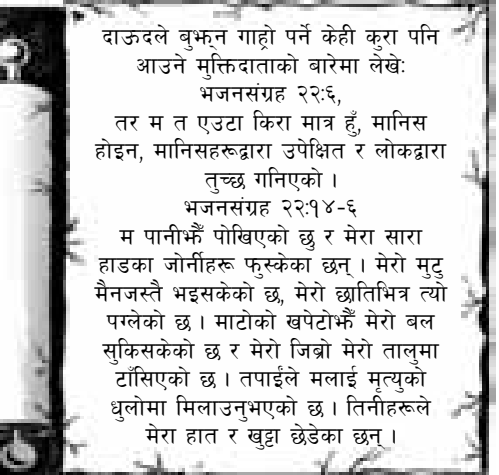 दाऊदले बुझ्न गाह्रो पर्ने केही कुरा पनि
आउने मुक्तिदाताको बारेमा लेखे:
भजनसंग्रह २२:६,
तर म त एउटा किरा मात्र हुँ, मानिस
होइन, मानिसहरूद्वारा उपेक्षित र लोकद्वारा
तुच्छ गनिएको ।
भजनसंग्रह २२:१४-६
म पानीझैँ पोखिएको छु र मेरा सारा
हाडका जोर्नीहरू फुस्केका छन् । मेरो मुटु
मैनजस्तै भइसकेको छ, मेरो छातिभित्र त्यो
पग्लेको छ । माटोको खपेटोझैँ मेरो बल
सुकिसकेको छ र मेरो जिब्रो मेरो तालुमा
टाँसिएको छ । तपाईंले मलाई मृत्युको
धुलोमा मिलाउनुभएको छ । तिनीहरूले
मेरा हात र खुट्टा छेडेका छन् ।